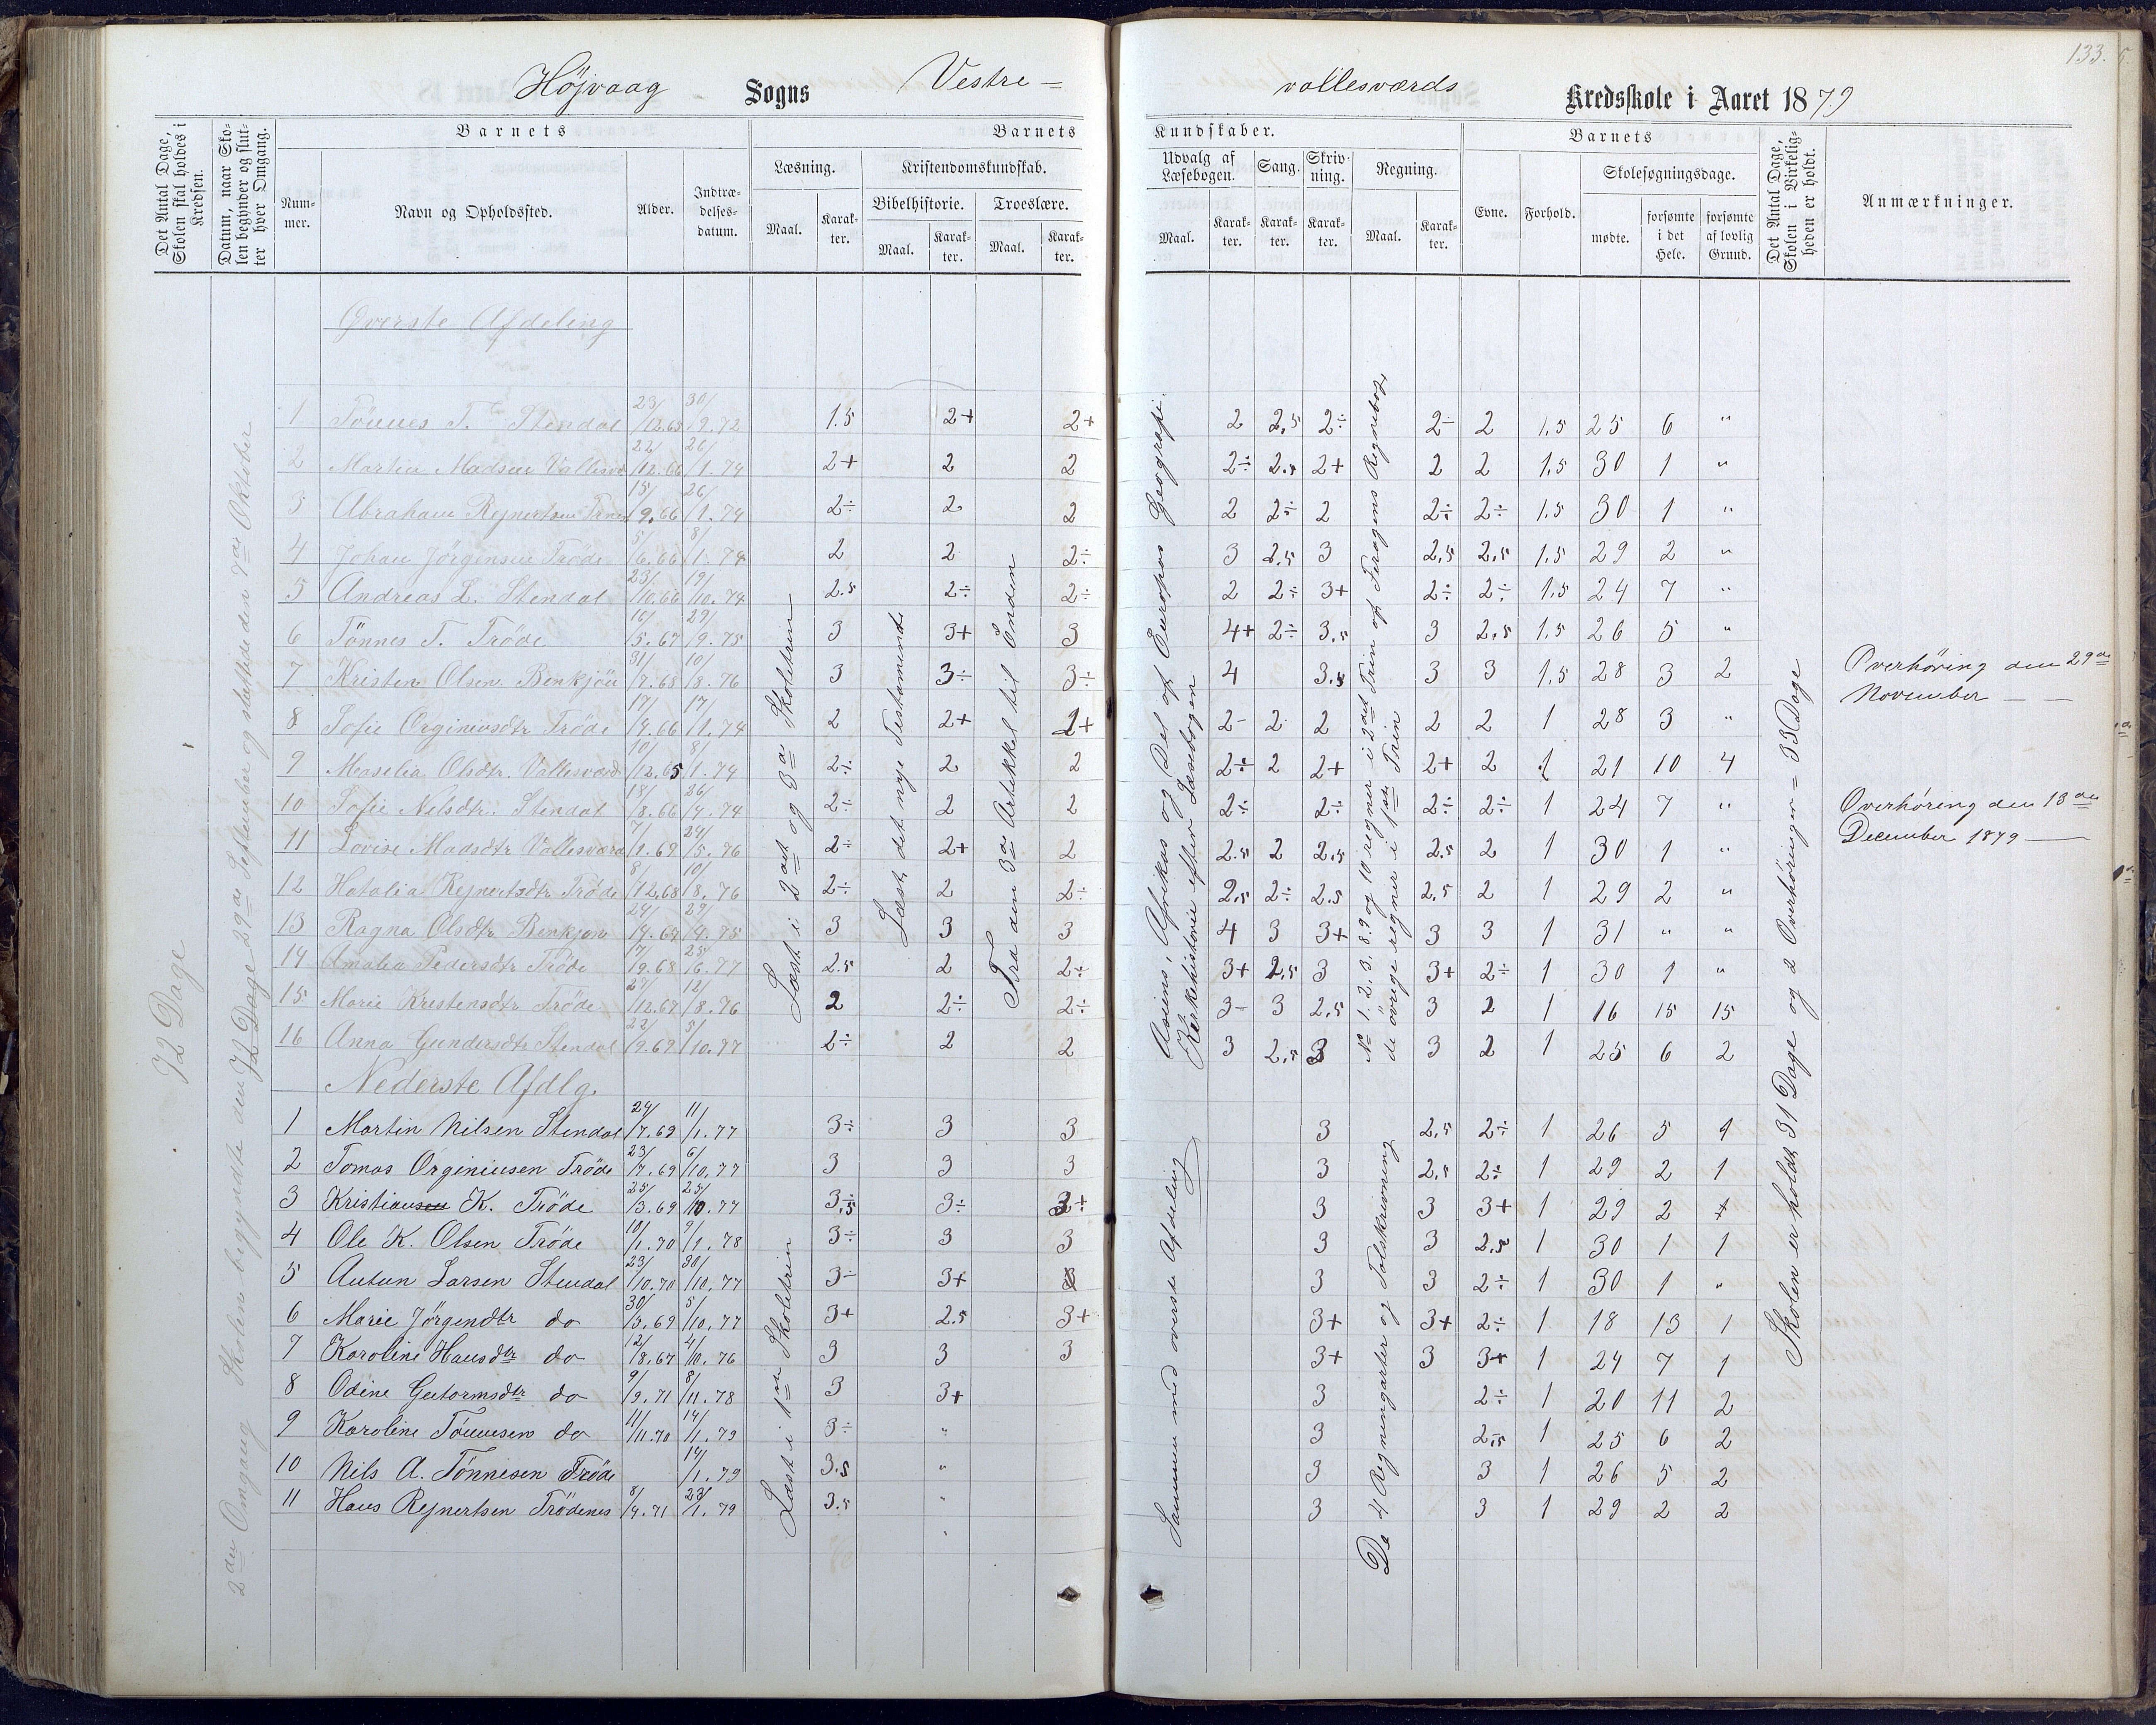 133.
Höjvaag Sogns Vestre=
vallesværds Kredsskole i Aaret 1879
Det Antal Dage, Skolen skal holdes i Kredsen.
Datum, naar Skolen begynder og slutter hver Omgang.
Barnets
Nummer.
Navn og Opholdssted.
Alder.
Indtrædelsesdatum.
Barnets
Læsning.
Maal.
Karakter.
Kristendomskundskab.
Bibelhistorie.
Maal.
Karakter.
Troeslære.
Maal.
Karakter.
Kundskaber.
Udvalg af Læsebogen.
Maal.
Karakter.
Sang.
Karakter.
Skrivning.
Karakter.
Regning.
Maal.
Karakter.
Barnets
Evne.
Forhold.
Skolesøgningsdage.
mødte.
forsømte i det Hele.
forsømte af lovlig Grund.
Det Antal Dage, Skolen i Virkeligheden er holdt.
Anmærkninger.
72 Dage
2den Omgang Skolen begyndte den 29de September og sluttede den Oktober
72 Dage
Øverste Afdeling
1 Tönnes T. Stendal 23/12.65 30/9.72 1.5 2+ 2+ 2 2,5 2÷ 2÷ 2 1,5 25 6 "
2 Martin Madsen Vallesvd 22/12.66 26/1.74 2+ 2 2 2÷ 2,5 2+ 2 2 1,5 30 1 "
3 Abraham Rejnertsen 15/9.66 26/1.74 2÷ 2 2 2 2÷ 2 2÷ 2÷ 1,5 30 1 "
4 Johan Jörgensen Tröde 5/6.66 8/1.74 2 2 2÷ 3 2,5 3 2,5 2,5 1,5 29 2 "
5 Andreas L. Stendal 23/10.66 19/10.74 2.5 2÷ 2÷ 2 2÷ 3+ 2÷ 2÷ 1,5 24 7 "
6 Tönnes T. Tröde 5.67 29/9.75 3 3+ 3 4+ 2÷ 3,5 3 2,5 1,5 26 5 "
7 Kristen Olsen Benkjön 31/7.68 10/8.76 3 3÷ 3÷ 4 3,5 3 3 1,5 28 3 2
8 Sofie Orginiusdtr Tröde 17/4.66 17/1.74 2 2+ 2+ 2- 2 2 2 2 1 28 3 "
9 Maselia Olsdtr. Vallesværd 10/12.65 8/1.74 2÷ 2 2 2÷ 2 2+ 2+ 2 1 21 10 4
10 Sofie Nilsdtr. Stendal 18/8.66 26/4.74 2÷ 2 2 2÷ 2÷ 2÷ 2÷ 1 24 7 "
11 Lovise Madsdtr Vallesværd 7/1.69 24/5.76 2÷ 2+ 2 2.5 2 2,5 2.5 2 1 30 1 "
12 Hatalia Rejnertsdtr Tröde 8/12.68 10/8.76 2÷ 2 2÷ 2,5 2÷ 2.5 2,5 2 1 29 2 "
13 Ragna Olsdtr Benkjön 24/4.64 27/4.75 3 3 3 4 3 3+ 3 3 1 31 " "
14 Amalia Pedersdtr Tröde 7/9.68 25/6.77 2.5 2 2÷ 3+ 2,5 3 3+ 2÷ 1 30 1 "
15 Marie Kristensdtr Tröde 27/12.67 12/8.76 2 2÷ 2÷ 3- 3 2,5 3 2 1 16 15 15
16 Anna Gundersdtr Stendal 22/9.69 5/10.77 2÷ 2 2 3 2,5 3 3 2 1 25 6 2
Læst i 2det og 3de Skoletrin
Læst det nye Testamente
Fra den 3de Artikkel til Enden
Asiens, Afrikas og Del af Europas Geografi.
Kirkehistorie efter Læsebogen
No 1. 2. 3. 8. 9 og 10 regner i 2det Trin af Regnebog,
de övrige regner i 1ste Trin
Nederste Afdlg.
1 Martin Nilsen Stendal 24/7.69 11/1.77 3÷ 3 3 3 2,5 2÷ 1 26 5 1
2 Tomas Orginiusen Tröde 23/7.69 6/10.77 3 3 3 3 2,5 2÷ 1 29 2 1
3 Kristiansen K. Tröde 25/3.69 25/10.77 3,5 3÷ 3 3 3+ 1 29 2
4 Ole K. Olsen Tröde 10/1.70 9/1.78 3÷ 3 3 3 3 2,5 1 30 1 1
5 Autun Larsen Stendal 23/10.70 30/10.77 3÷ 3+ 3 3 3 2÷ 1 30 1 "
6 Marie Jörgendtr do 30/3.69 5/10.77 3+ 2.5 3+ 3+ 3+ 2÷ 1 18 13 1
7 Karoline Hansdtr do 12/8.67 4/10.76 3 3 3 3+ 3 3+ 1 24 7 1
8 Odine Gutormsdtr do 9/9.71 8/11.78 3 3+ 3 2÷ 1 20 11 2
9 Karoline Tönnesen do 11/11.70 14/1.79 3÷ " 3 2,5 1 25 6 2
10 Nils A. Tönnisen Tröde 14/1.79 3.5 " 3 3 1 26 5 2
11 Hans Rejnertsen Trödenes 8/4.71 23/1.79 3.5 " 3 3 1 29 2 2
Læst i 1ste Skoletrin
Sammen med øverste Afdeling
De 4 Regningarter og Talskrivning
Skolen er holdt 31 Dage og 2 Overhöringer = 33 Dage
Overhöring den 29de
November —
Overhöring den 13de
December 1879 —